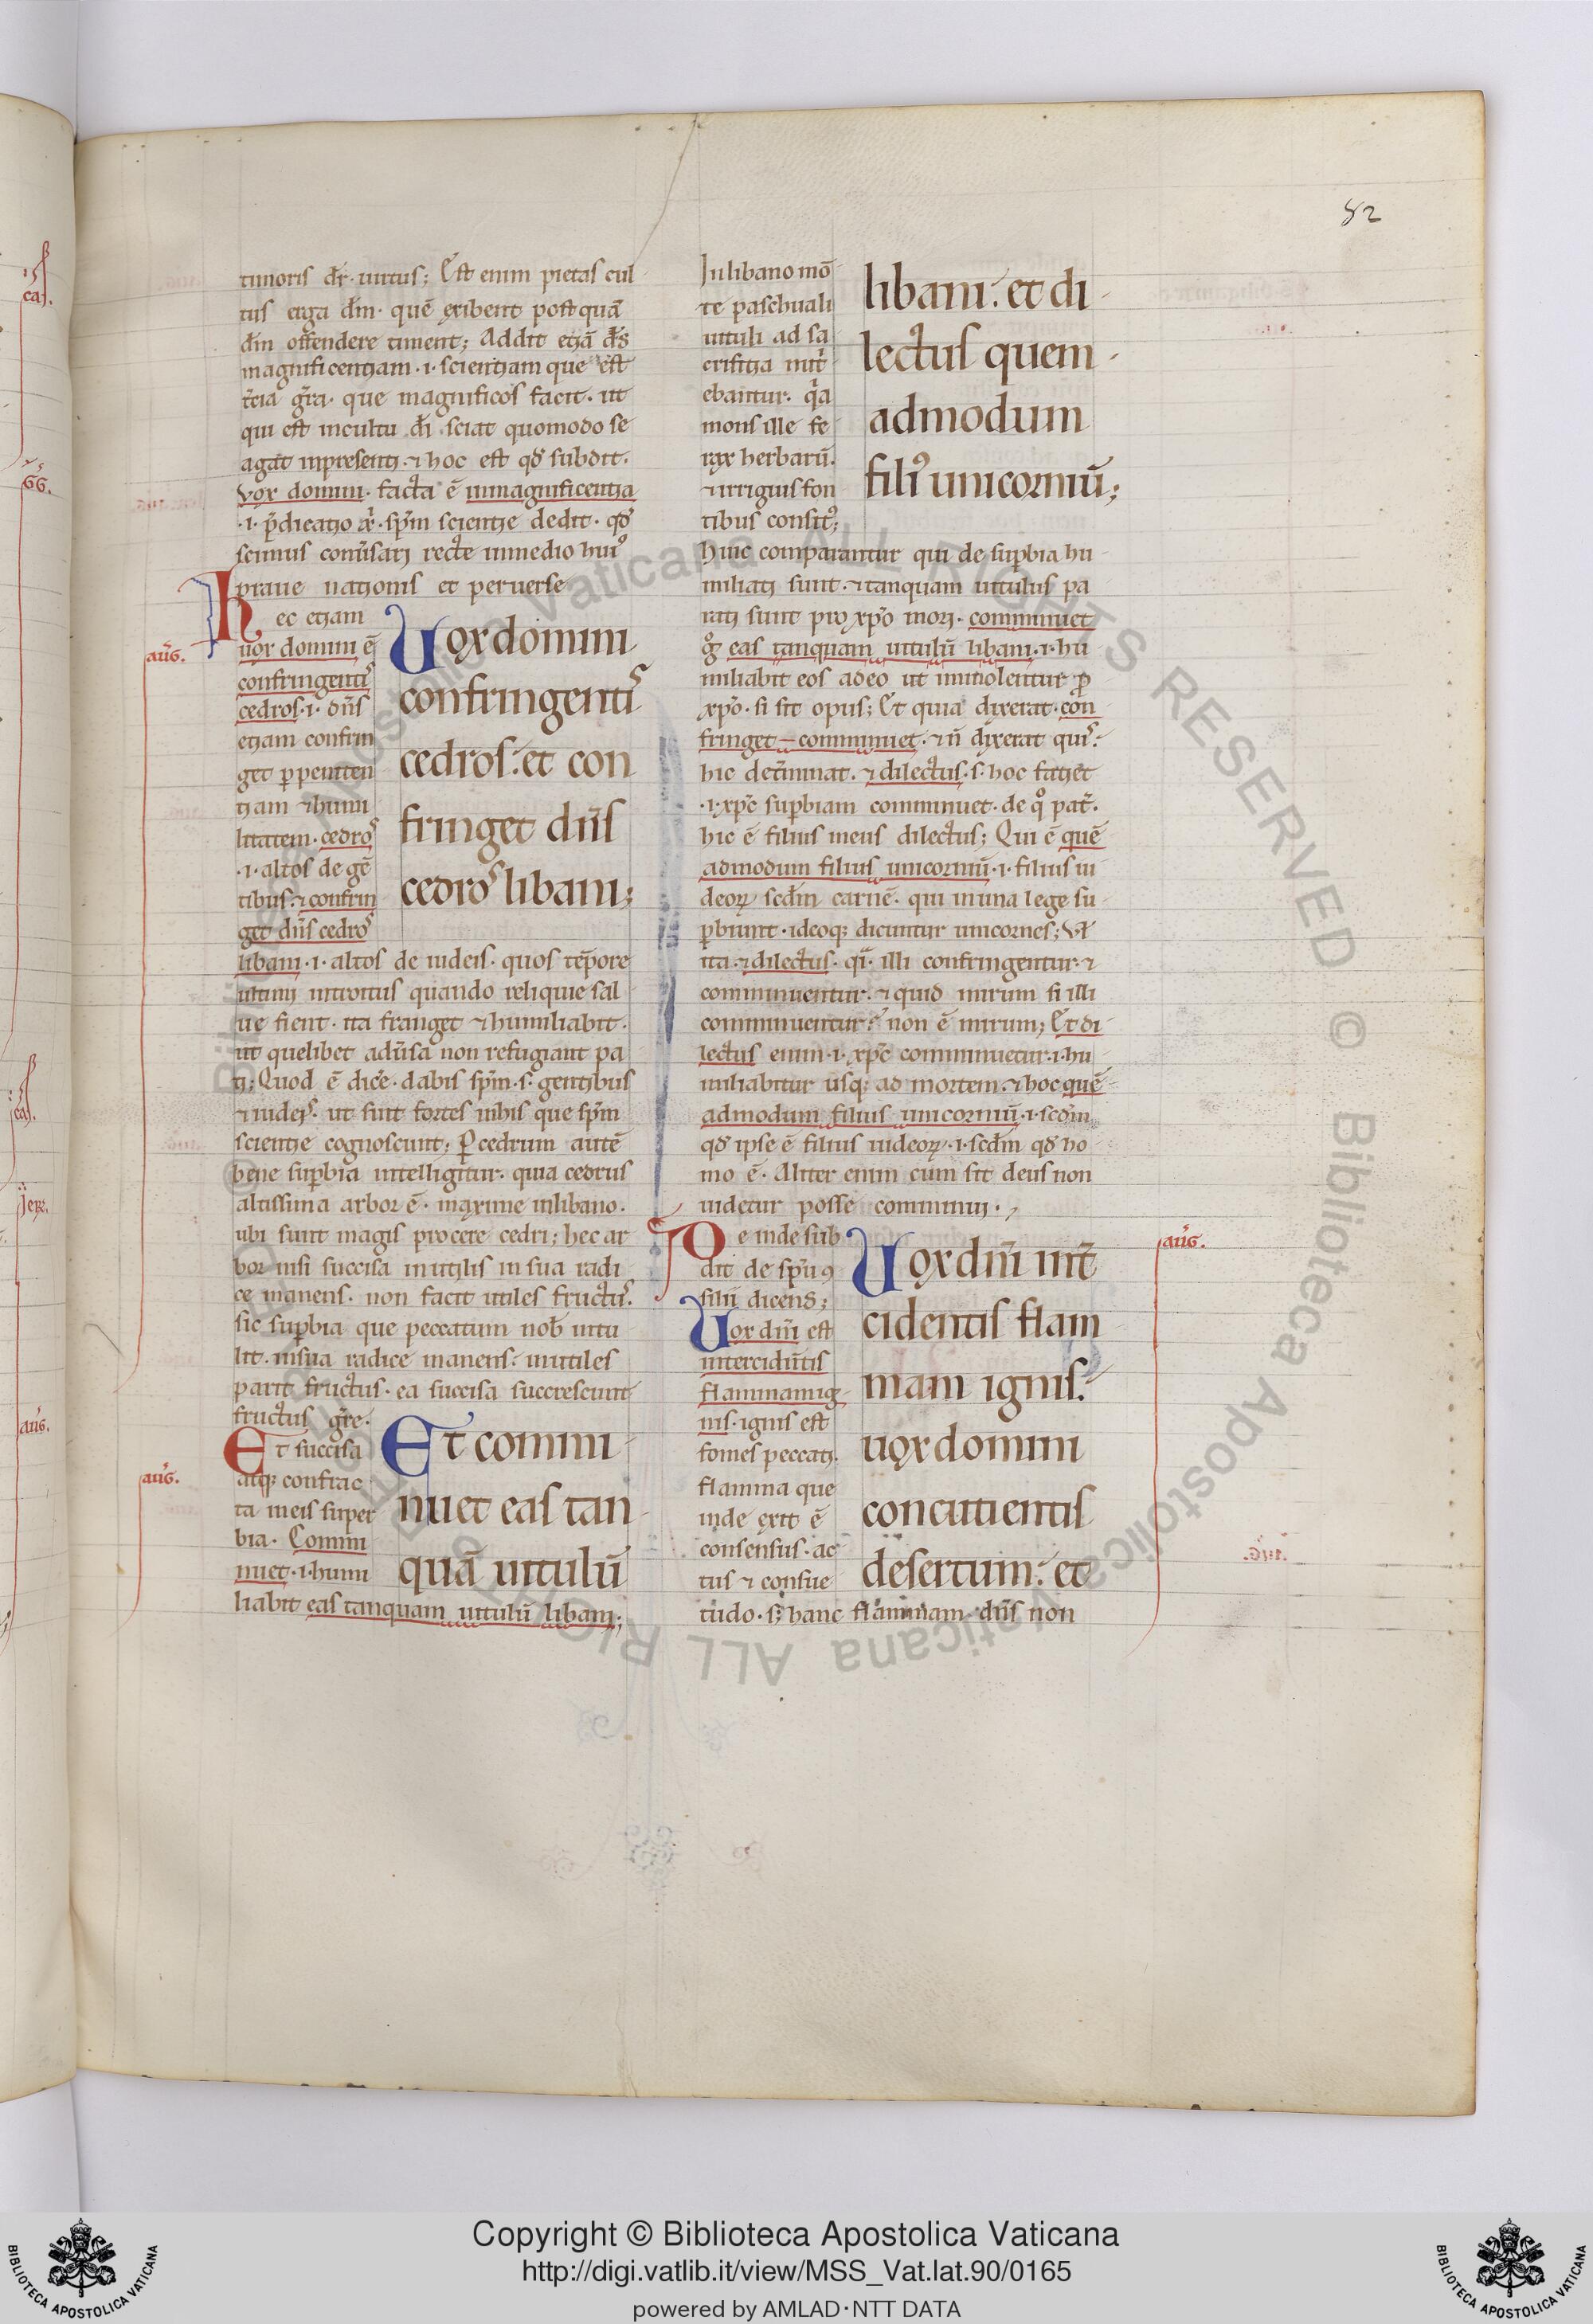 82
timoris dr̄. uirtus; Est enim pietas cul
tus erga dm̄. quē exibent postquā
dm̄ offendere timent; Addit etiā d̄s
magnificentiam .i. scientiam que est
t̄cia gr̄a. que magnificos facit. ut
qui est in cultu d̄i sciat quomodo se
agat in presenti. ⁊ hoc est qd̄ subdit.
Vox domini. facta ē in magnificentia
.i. p̄dicatio xp̄i. sp̄m scientie dedit. qđ
scimus conu̅sari recte in medio hui᷒
praue nationis et peruerse
aug̅.
Hec etiam
uox domini ē
confringentis
cedros .i. dn̄s
etiam confrin
get p̱ peniten
tiam ⁊ humi
litatem. cedros
.i. altos de gē
tibus. ⁊ confrin
get dn̄s cedros
Uox domini
confringentis
cedros: et con
fringet dn̄s
cedros libani;
libani .i. altos de iudeis. quos tēpore
ultimi introitus quando reliquie sal
ue fient. ita franget ⁊ humiliabit.
ut quelibet adu̅sa non refugiant pa
ti; Quod ē dice̅. dabis sp̄m .s. gentibus
⁊ iudeis. ut sint fortes in his que sp̄m
scientie cognoscunt; P̱ cedrum autē
bene sup̱bia intelligitur. quia cedrus
altissima arbor ē. maxime in libano.
ubi sunt magis procere cedri; hec ar
bor nisi succisa inutilis in sua radi
ce manens. non facit utiles fructus.
sic sup̱bia que peccatum nob̄ intu
lit. in sua radice manens. inutiles
parit fructus. ea succisa succrescunt
fructus gr̄e.
aug̅.
Et succisa
atq; confrac
ta in eis super
bia. Commi
nuet .i. humi
Et commi
nuet eas tan
quā uitulū
liabit eas tanquam uitulū libani;
In libano mō
te paschuali
uituli ad sa
crificia nut̅
ebantur. q̅a
mons ille fe
rax herbarū.
⁊ irriguis fon
tibus consit᷒;
libani: et di
lectus quem
admodum
fili᷒ unicorniū;
Huic comparantur qui de sup̱bia hu
miliati sunt. ⁊ tanquam uitulus pa
rati sunt pro xp̄o mori. comminuet
g̊ eas tanquam uitulū libani .i. hu
miliabit eos adeo ut inmolentur p̱
xp̄o. si sit opus; Et quia dixerat. con
fringet – comminuet. ⁊ n̄ dixerat quis.
hic det̅minat. ⁊ dilectus .s. hoc faciet
.i. xp̄c sup̱biam comminuet. de q̊ pat̅.
hic ē filius meus dilectus; Qui ē quē
admodum filius unicorniū .i. filius iu
deoꝝ scđm carnē. qui in una lege su
p̱biunt. ideoq; dicuntur unicornes; Vł
ita. ⁊ dilectus. q̄i. illi confringentur. ⁊
comminuentur. ⁊ quid mirum si illi
comminuentur? non ē mirum; Et di
lectus enim .i. xp̄c comminuetur .i. hu
miliabitur usq; ad mortem. ⁊ hoc quē
admodum filius unicorniū .i. scđm
qđ ipse ē filius iudeoꝝ .i. scđm qđ ho
mo ē. Aliter enim cum sit deus non
uidetur posse comminui.
aug̅.
e inde sub
dit de
sibi dicens;
Uox dn̄i est
intercidentis
flammam ig
nis. ignis est
fomes peccati.
flamma que
inde exit ē
consensus. ac
tus ⁊ consue
Uox dn̄i int̄
cidentis flam
mam ignis:
uox domini
concutientis
desertum: et
tudo. s; hanc flammam dn̄s non
ca.
GG.
ca.
Jer.
aug̅.
© Biblioteca Apostolica Vaticana ALL RIGHTS RESERVED © Biblioteca Apostolica Vaticana ALL RIGHTS RESERVED
Copyright © Biblioteca Apostolica Vaticana
http://digi.vatlib.it/view/MSS_Vat.lat.90/0165
powered by AMLAD·NTT DATA
BIBLIOTECA APOSTOLICA VATICANA
BIBLIOTECA APOSTOLICA VATICANA